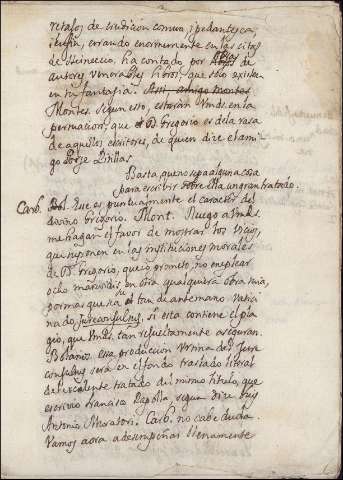 retazos de erudicion comun, i pedantesca,
i en fin, errando enormemente en las citas
de Heineccio, ha contado, por Obras de
autores venerables libros, que solo existen
en su fantasia. Assi, amigo Montes
Montes. Segun esso, estarán Vmds. en la
persuacion, que D. Gregorio es de la raza
de aquellos escritores, de quien dice el ami-
go Jorge
Basta que no sepa alguna cosa
para escribir sobre ella un gran tratado.
Carb. Esse es puntualmente el caracter del
divino Grigorio. Mont. Ruego a Vmds.
me hagan el favor de mostrar los vicios,
que suponen en las Instituciones morales
de D. Grigorio, que io prometo, no emplear
ocho maravedis en otra qualquiera obra suia,
por mas que sea el tan de antemano vatici-
nado, Jureconsultus, si esta contiene el pla-
gio, que Vmds. tan resueltamente aseguran.
Bolaños. Essa produccion Ursina del Jure
consultus será en el fondo traslado literal
del excelente tratado del mismo titulo, que
escrivio Francisco Rapolla, segun dice Luis
Antonio Muratori. Carb. no cabe duda.
Vamos aora a desempeñar llenamente